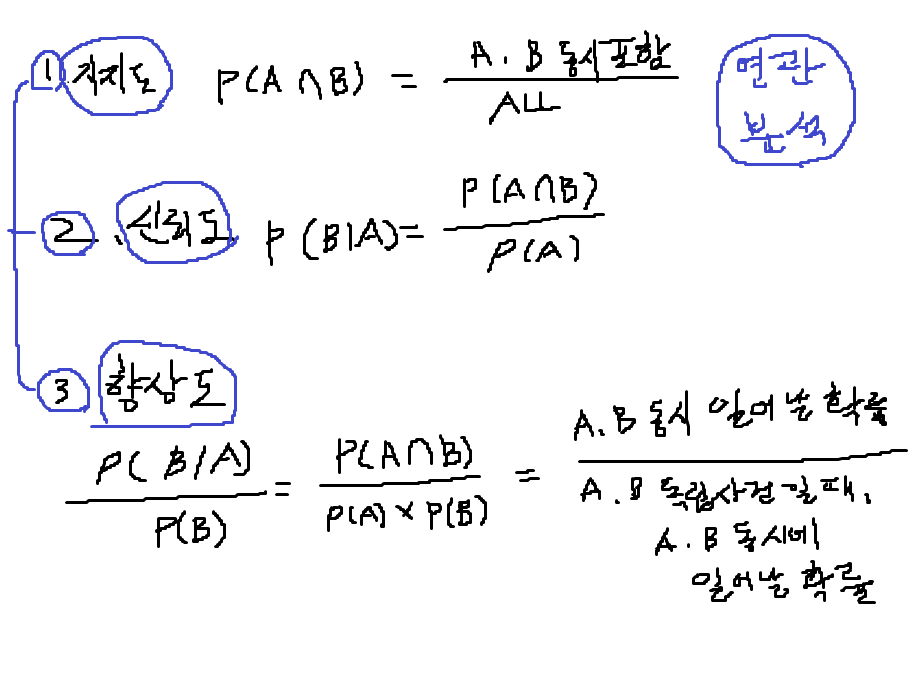 ① 지지도 P(A∩B) = A.B 동시포함 / ALL
연관
분석
② 신뢰도 P(B|A) = P(A∩B) / P(A)
③ 향상도
P(B/A) / P(B) = P(A∩B) / P(A)×P(B) = A.B 동시 일어날 확률 / A.B 독립사건 일때,
A.B 동시에
일어날 확률